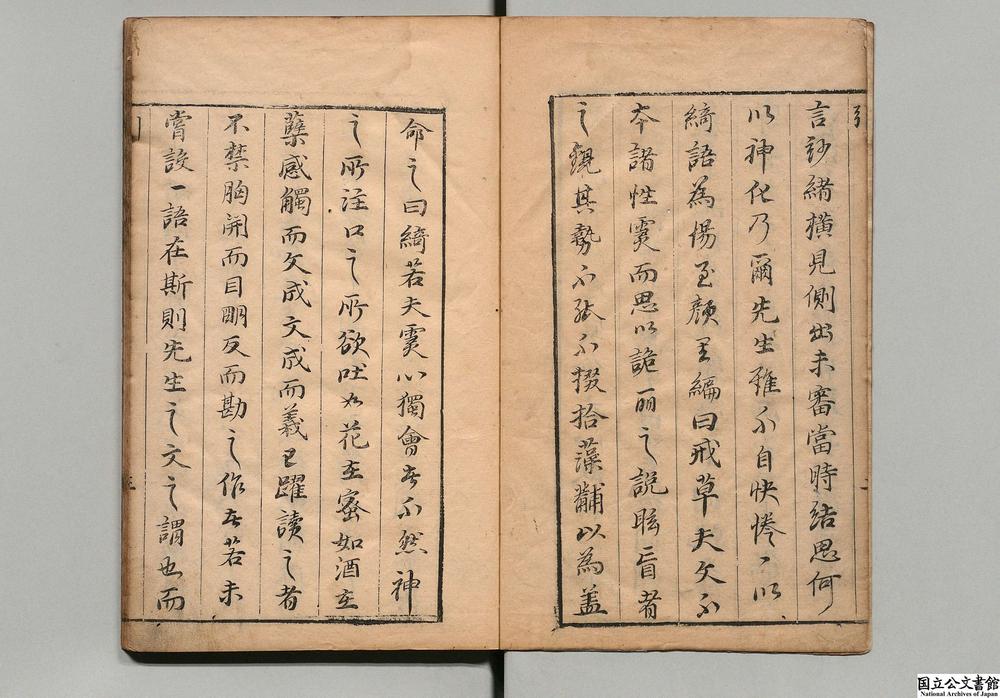 引
言紗緒橫見側出未審當時結思何
以神化乃爾先生雖不自快惓〻以
綺語為惕至顏是編曰戒草夫文不
本諸性靈而思以詭麗之說眩盲者
之覩其勢不能不掇拾藻黼以為盖
二
命之曰綺若夫靈心獨會者不然神
之所注口之所欲吐如花在蜜如酒在
蘖感觸而文成文成而義已躍讀之者
不禁胸開而目明反而勘之作者若未
嘗設一語在斯則先生之文之謂也而
国立公文書館
National Archives of Japan